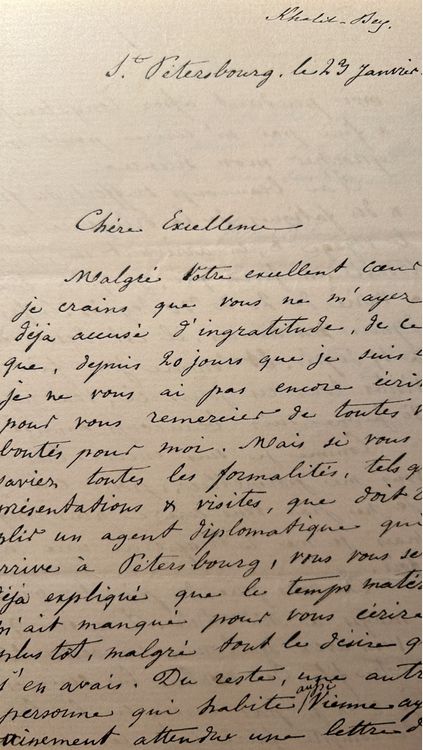 Khalil-Bey.
St. Pétersbourg. le 23 Janvier
Chère Excellence
Malgré Votre excellent cœur
je crains que vous ne m'ayez
déjà accusé d'ingratitude, de ce
que, depuis 20 jours que je suis
je ne vous ai pas encore écrit
pour vous remercier de toutes
bontés pour moi. Mais si vous
saviez toutes les formalités, tels q
présentations & visites, que doit
plir un agent diplomatique qui
arrive à Pétersbourg, vous vous se
déjà expliqué que le temps maté
m'ait manqué pour vous écrire
plus tôt, malgré tout le désire q
j'en avais. Du reste, une autr
personne qui habite aussi Vienne ay
vainement attendue une lettre d